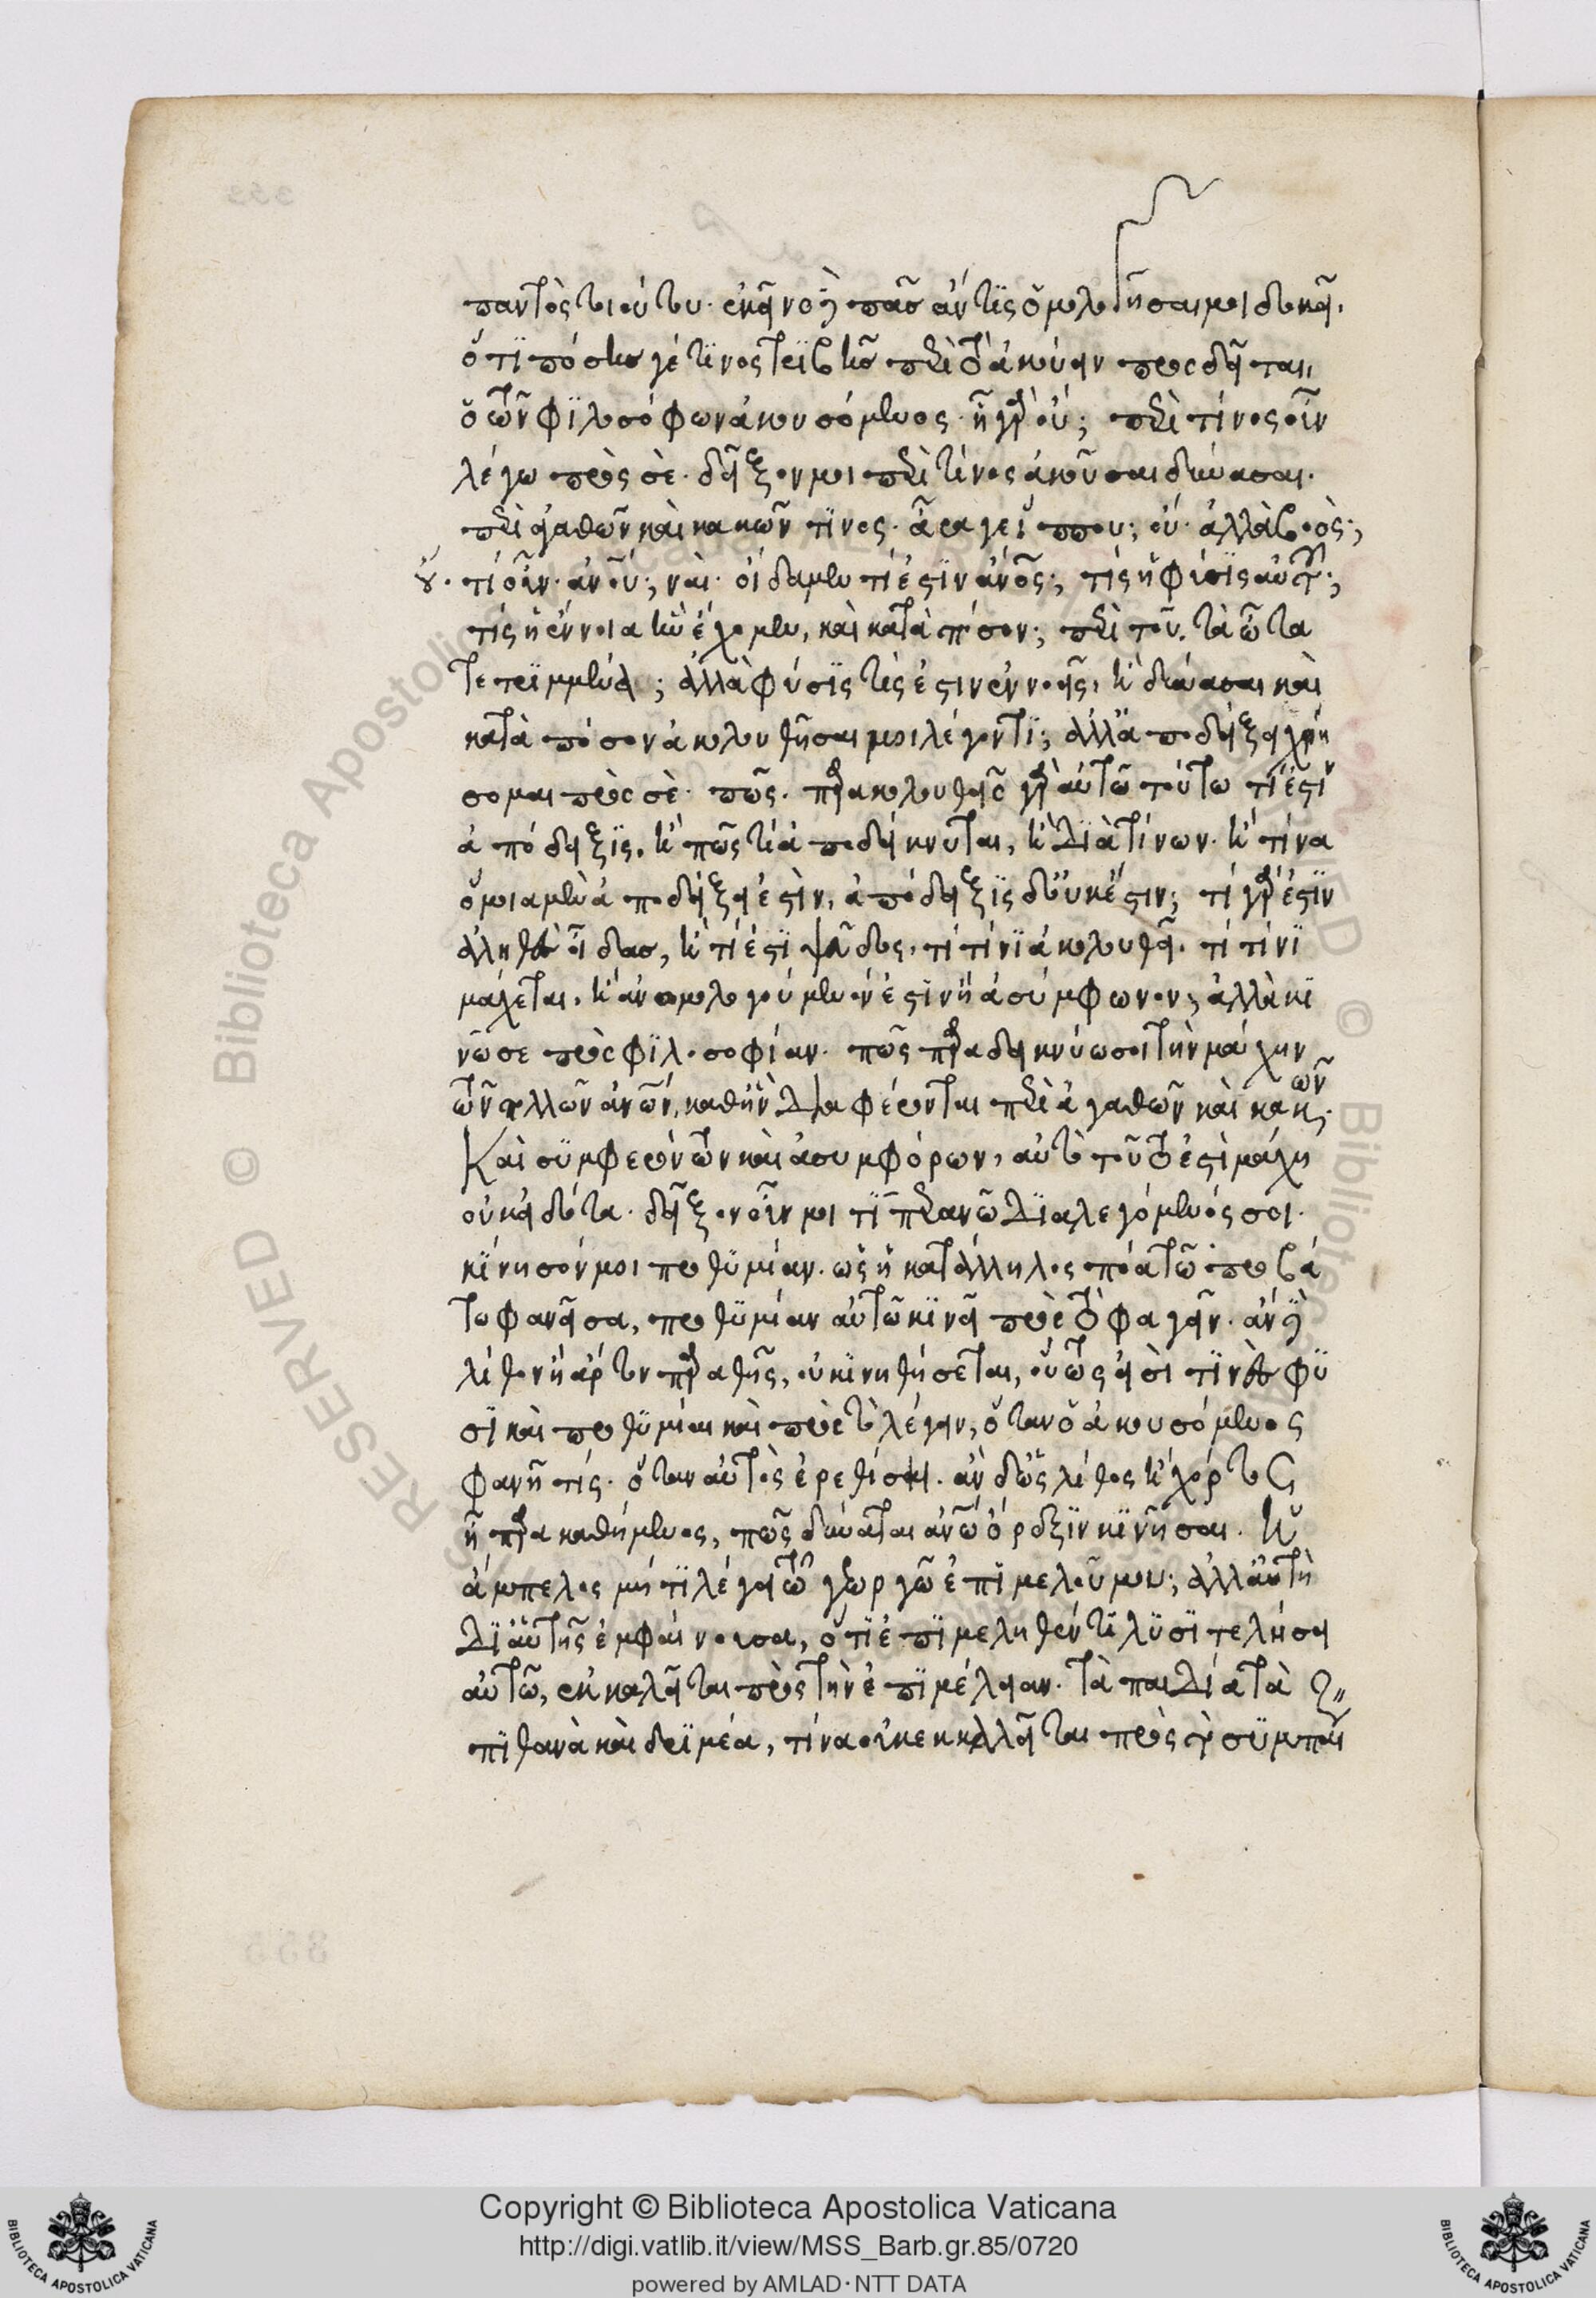 παντὸς τοιούτου. ἐκεῖνο δὲ πᾶς ἄν τις ὁμολογῆσαί μοι δοκεῖ.
ὅτι προσδεῖ γέ τινος τριβῆς περὶ τὸ ἀκούειν προσδεῖται,
ὁ τῶν φιλοσόφων ἀκουσόμενος. ἢ γὰρ οὔ; περὶ τίνος οὖν
λέγω πρὸς σέ. δεῖξον μοι περὶ τίνος ἀκοῦσαι δύνασαι.
περὶ ἀγαθῶν καὶ κακῶν τίνος. ἆρά γε ἵππου; οὔ. ἀλλὰ βοός;
οὔ. τί οὖν. ἀνου; ναί. οἴδαμεν τί ἐστιν ἄνος; τίς ἡ φύσις αὐτοῦ;
τίς ἡ ἔννοια ἣν ἔχομεν, καὶ κατὰ πόσον; περὶ τοῦ τὰ ὦτα
τετριμμένα; ἀλλὰ φύσις τίς ἐστιν ἐννοεῖς, καὶ δύνασαι καὶ
κατὰ πόσον ἀκολουθῆσαί μοι λέγοντι; ἀλλ' ἀποδείξει χρή
σομαι πρὸς σέ. πῶς. παρακολουθεῖς γὰρ αὐτῷ τούτῳ τί ἐστιν
ἀπόδειξις, καὶ πῶς τι ἀποδείκνυται, καὶ διὰ τίνων. καὶ τίνα
ὅμοια μὲν ἀποδείξει ἐστὶν, ἀπόδειξις δ' οὐκ ἔστιν; τί γάρ ἐστιν
ἀληθὲς οἶδας, καὶ τί ἐστι ψεῦδος, τί τίνι ἀκολουθεῖ. τί τίνι
μάχεται. καὶ ἀνομολογούμενόν ἐστιν ἢ ἀσύμφωνον; ἀλλὰ κι
νῶ σε πρὸς φιλοσοφίαν. πῶς παραδεικνύω σοι τὴν μάχην
τῶν πολλῶν ἀνων, καθ' ἣν διαφέρονται περὶ ἀγαθῶν καὶ κακῶν;
Καὶ συμφερόντων καὶ ἀσυμφόρων, αὐτὸ τοῦτο τί ἐστι μάχη
οὐκ εἰδότα. δεῖξον οὖν μοι τί περανῶ διαλεγόμενός σοι.
κίνησόν μοι προθυμίαν. ὡς ἡ κατάλληλος πόα τῷ προβά
τῳ φανεῖσα, προθυμίαν αὐτῷ κινεῖ πρὸς τὸ φαγεῖν. ἂν δὲ
λίθον ἢ ἄρτον παραθῇς, οὐ κινηθήσεται, οὕτως εἰσί τινες φύ
σι καὶ προθυμίαι καὶ πρὸς τὸ λέγειν, ὅταν ὁ ἀκουσόμενος
φανῇ τίς. ὅταν αὐτὸς ἐρεθίσῃ. ἂν δ' ὡς λίθος καὶ χόρτος
ᾖ παρακαθήμενος, πῶς δύναται ἀνω ὄρεξιν κινῆσαι. ἡ
ἄμπελος μή τι λέγει τῷ γεωργῷ ἐπιμελοῦ μου; ἀλλ' αὐτὴ
δι' αὑτῆς ἐμφαίνουσα, ὅτι ἐπιμεληθέντι λυσιτελήσει
αὐτῷ, ἐκκαλεῖται πρὸς τὴν ἐπιμέλειαν. τὰ παιδία τὰ
πιθανὰ καὶ δριμέα, τίνα οὐκ ἐκκαλεῖται πρὸς τὸ συμπαί
Copyright © Biblioteca Apostolica Vaticana
http://digi.vatlib.it/view/MSS_Barb.gr.85/0720
powered by AMLAD·NTT DATA